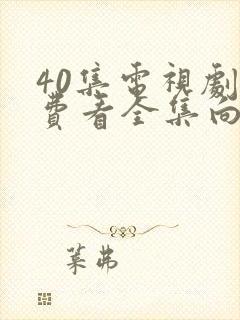 40集電視劇
費看全集向
葉弗